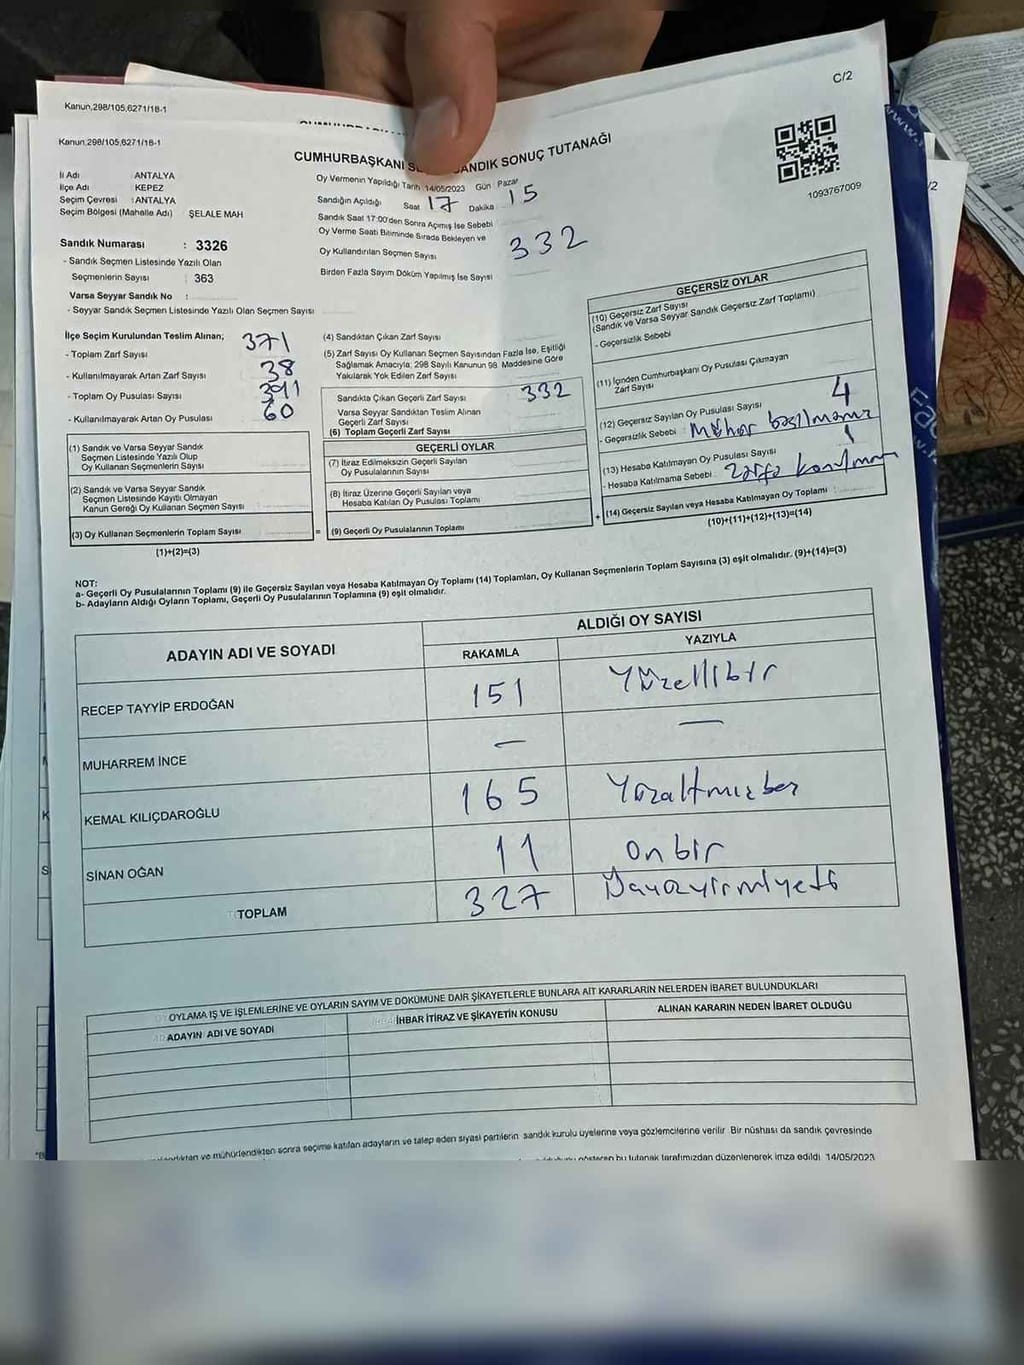 C/2
Kanun,298/105,6271/18-1
Kanun,298/105,6271/18-1
CUMHURBAŞKANI SANDIK SONUÇ TUTANAĞI
1093767009
İli Adı ANTALYA
İlçe Adı KEPEZ
Seçim Çevresi : ANTALYA
Seçim Bölgesi (Mahalle Adı) ŞELALE MAH
Sandık Numarası : 3326
- Sandık Seçmen Listesinde Yazılı Olan
Seçmenlerin Sayısı : 363
Varsa Seyyar Sandık No :
- Seyyar Sandık Seçmen Listesinde Yazılı Olan Seçmen Sayısı
Oy Vermenin Yapıldığı Tarih 14/05/2023 Gün Pazar
Sandığın Açıldığı Saat 17 Dakika 15
Sandık Saat 17:00'den Sonra Açımış İse Sebebi
Oy Verme Saati Bitiminde Sırada Bekleyen ve
Oy Kullandırılan Seçmen Sayısı 332
Birden Fazla Sayım Döküm Yapılmış İse Sayısı
İlçe Seçim Kurulundan Teslim Alınan;
- Toplam Zarf Sayısı 371
- Kullanılmayarak Artan Zarf Sayısı 38
- Toplam Oy Pusulası Sayısı 391
- Kullanılmayarak Artan Oy Pusulası 60
(1) Sandık ve Varsa Seyyar Sandık
Seçmen Listesinde Yazılı Olup
Oy Kullanan Seçmenlerin Sayısı
(2) Sandık ve Varsa Seyyar Sandık
Seçmen Listesinde Kayıtlı Olmayan
Kanun Gereği Oy Kullanan Seçmen Sayısı
(3) Oy Kullanan Seçmenlerin Toplam Sayısı
(1)+(2)=(3)
(4) Sandıktan Çıkan Zarf Sayısı
(5) Zarf Sayısı Oy Kullanan Seçmen Sayısından Fazla İse, Eşitliği
Sağlamak Amacıyla, 298 Sayılı Kanunun 98. Maddesine Göre
Yakılarak Yok Edilen Zarf Sayısı
Sandıkta Çıkan Geçerli Zarf Sayısı 332
Varsa Seyyar Sandıktan Teslim Alınan
Geçerli Zarf Sayısı
(6) Toplam Geçerli Zarf Sayısı
GEÇERLİ OYLAR
(7) İtiraz Edilmeksizin Geçerli Sayılan
Oy Pusulalarının Sayısı
(8) İtiraz Üzerine Geçerli Sayılan veya
Hesaba Katılan Oy Pusulası Toplamı
= (9) Geçerli Oy Pusulalarının Toplamı
GEÇERSİZ OYLAR
(10) Geçersiz Zarf Sayısı
(Sandık ve Varsa Seyyar Sandık Geçersiz Zarf Toplamı)
- Geçersizlik Sebebi
(11) İçinden Cumhurbaşkanı Oy Pusulası Çıkmayan
Zarf Sayısı
(12) Geçersiz Sayılan Oy Pusulası Sayısı 4
- Geçersizlik Sebebi : Mühür basılmamız
(13) Hesaba Katılmayan Oy Pusulası Sayısı 1
- Hesaba Katılmama Sebebi : Zarfa
+ (14) Geçersiz Sayılan veya Hesaba Katılmayan Oy Toplamı
(10)+(11)+(12)+(13)=(14)
NOT:
a- Geçerli Oy Pusulalarının Toplamı (9) ile Geçersiz Sayılan veya Hesaba Katılmayan Oy Toplamı (14) Toplamları, Oy Kullanan Seçmenlerin Toplam Sayısına (3) eşit olmalıdır. (9)+(14)=(3)
b- Adayların Aldığı Oyların Toplamı, Geçerli Oy Pusulalarının Toplamına (9) eşit olmalıdır.
ADAYIN ADI VE SOYADI ALDIĞI OY SAYISI
RAKAMLA YAZIYLA
RECEP TAYYİP ERDOĞAN 151 Yüzellibir
MUHARREM İNCE — —
KEMAL KILIÇDAROĞLU 165 Yüzaltmışbeş
SİNAN OĞAN 11 onbir
TOPLAM 327
OYLAMA İŞ VE İŞLEMLERİNE VE OYLARIN SAYIM VE DÖKÜMÜNE DAİR ŞİKAYETLERLE BUNLARA AİT KARARLARIN NELERDEN İBARET BULUNDUKLARI
ADAYIN ADI VE SOYADI İHBAR İTİRAZ VE ŞİKAYETİN KONUSU ALINAN KARARIN NEDEN İBARET OLDUĞU
ve mühürlendikten sonra seçime katılan adayların ve talep eden siyasi partilerin sandık kurulu üyelerine veya gözlemcilerine verilir Bir nüshası da sandık çevresinde
bu tutanak tarafımızdan düzenlenerek imza edildi 14/05/2023